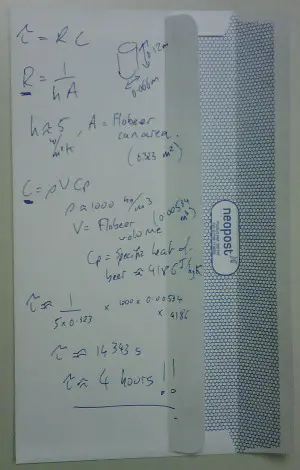 τ = R C
0.12m
0.066m
R = 1/hA
h ≈ 5 W/m²K, A = Area of beer can area.
(0.323 m²)
C = ρVCp
ρ ≈ 1000 kg/m³
V = of beer volume (0.00534 m³)
Cp = Specific heat of beer ≈ 4186 J/kgK
τ ≈ 1/(5 × 0.323) × 1000 × 0.00534 × 4186
τ ≈ 14343 s
τ ≈ 4 hours!!
neopost